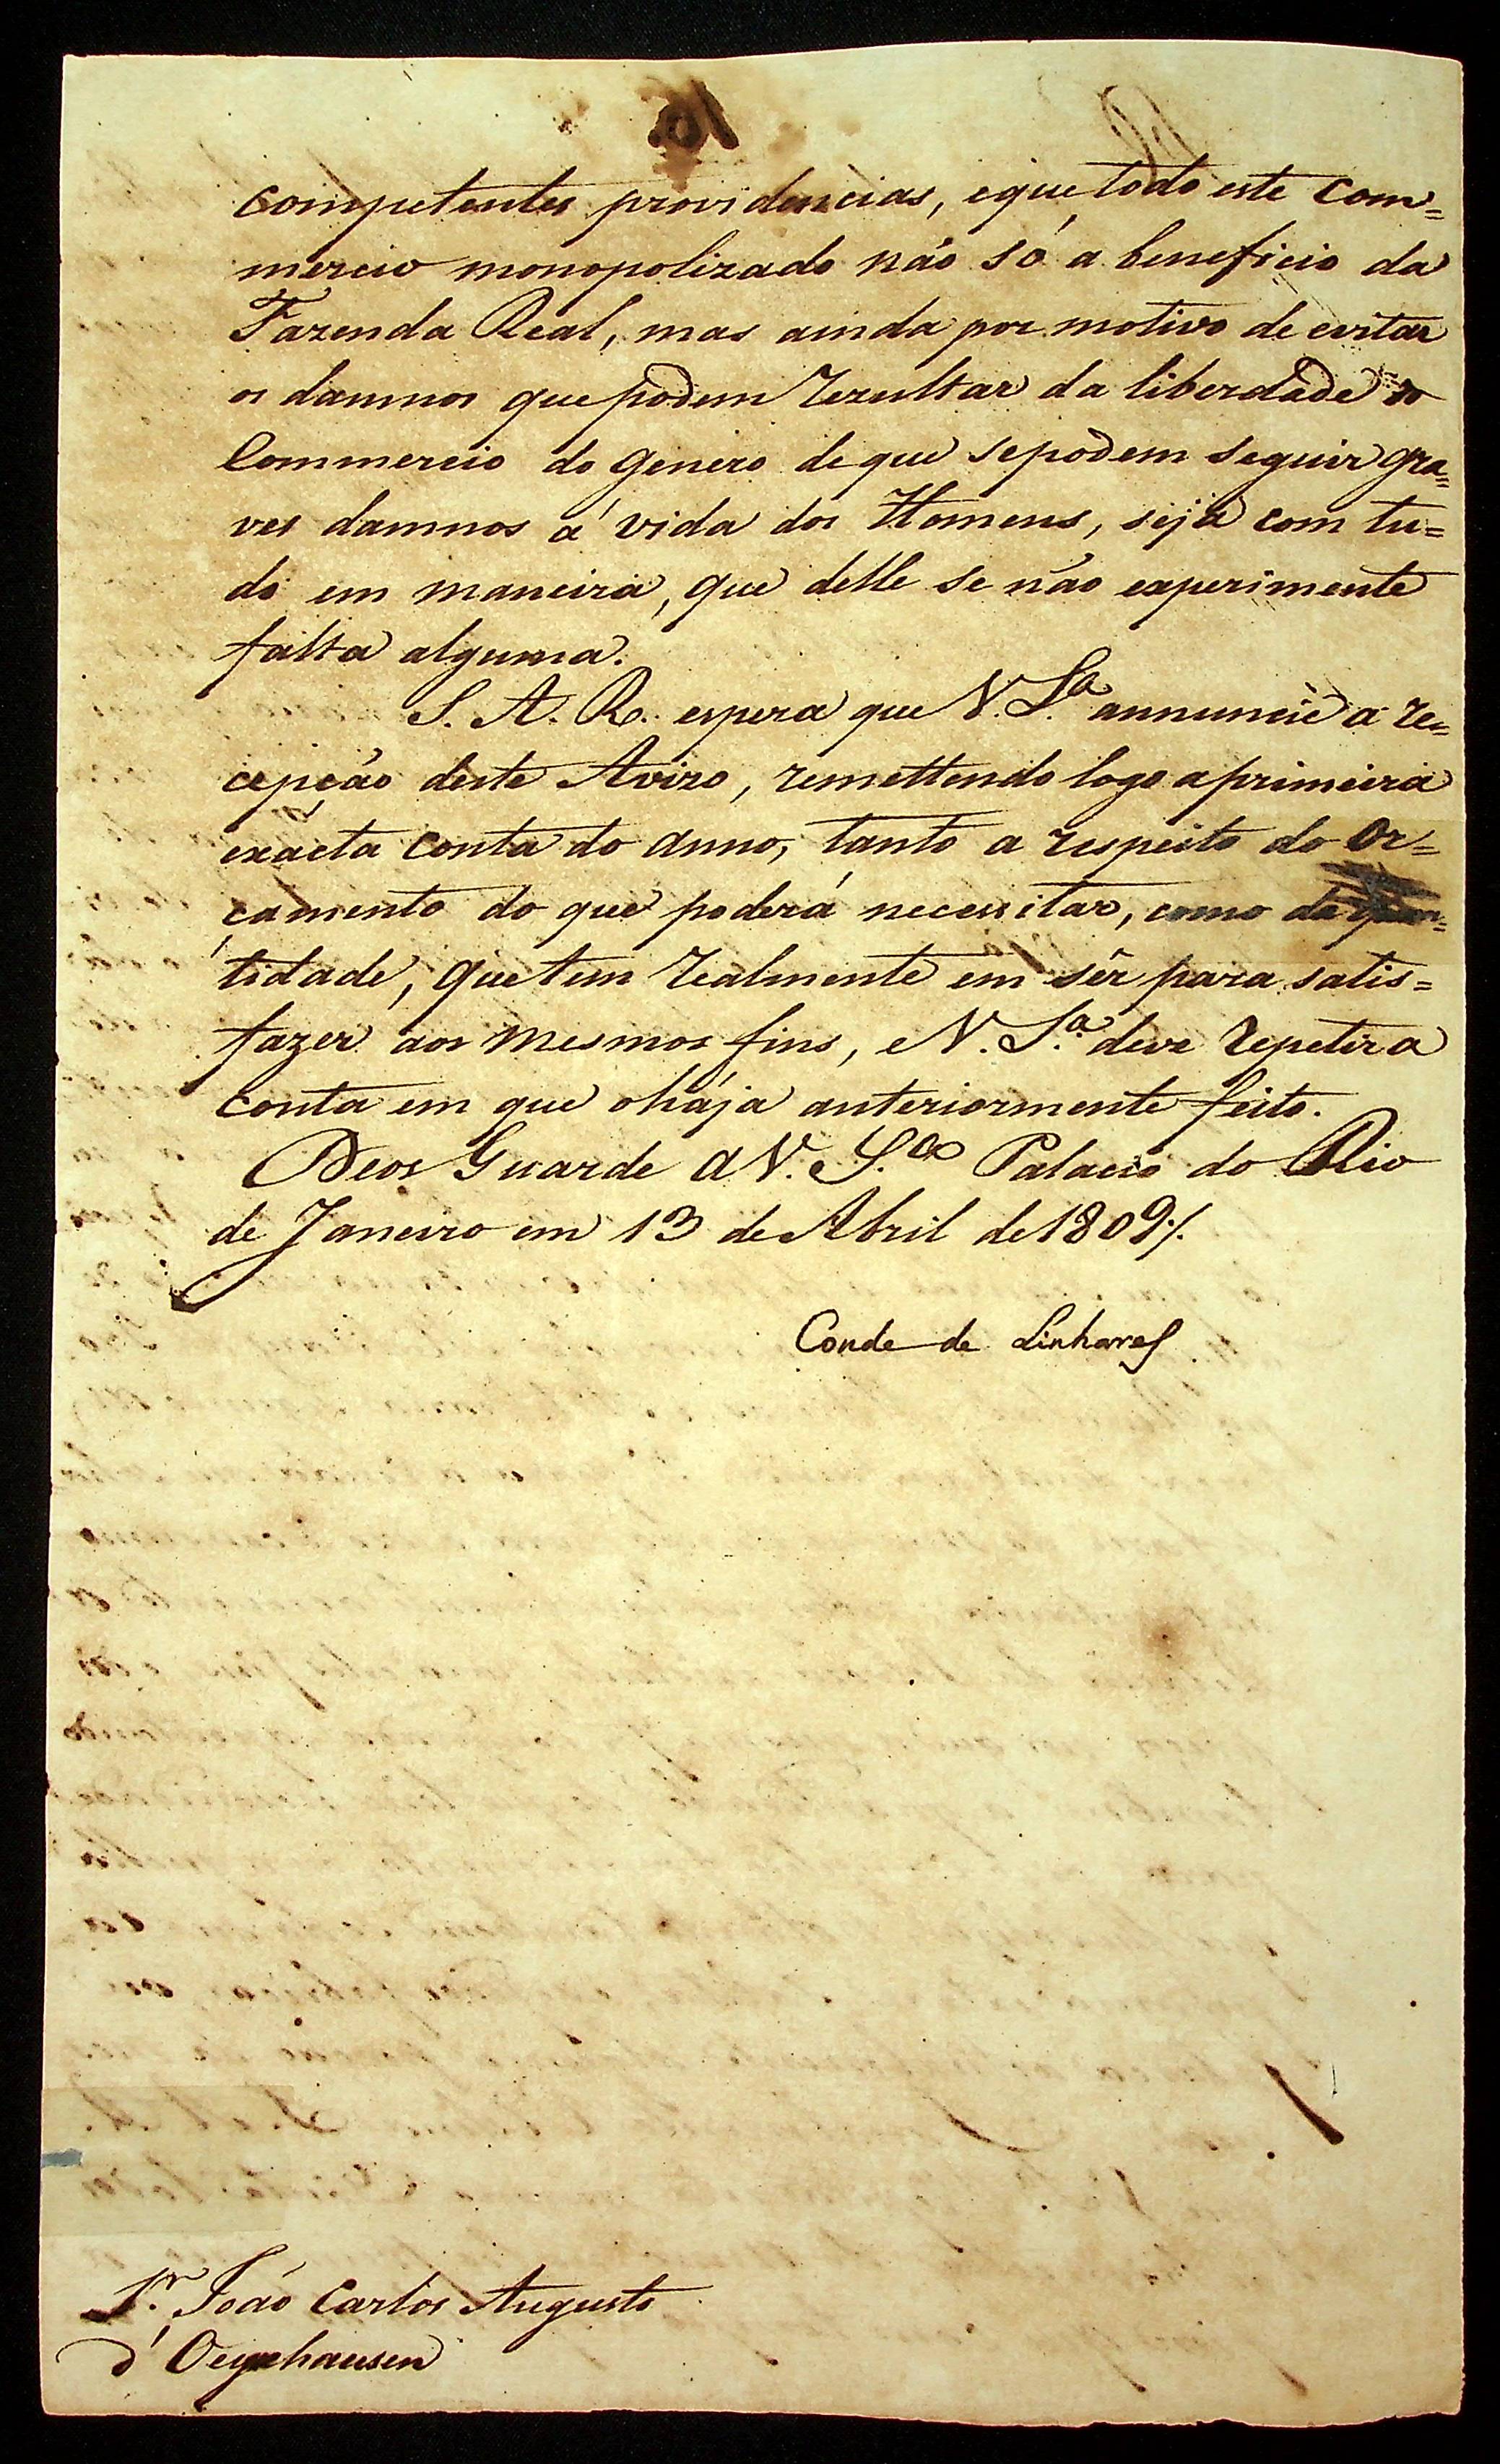 competentes providencias, e que todo este Com=
mercio monopolizado não só a beneficio da
Fazenda Real, mas ainda por motivo de evitar
os damnos que podem rezultar da liberdade do
Commercio do genero de que se podem seguir gra=
ves damnos á vida dos Homens, seja com tu=
do em maneira, que delle se não experimente
falta alguma.
S. A. R. espera que V. S.ª annuncie a re=
cepção deste Avizo, remettendo logo a primeira
exácta conta do anno, tanto a respeito do Or=
çamento do que poderá necessitar, como da quan=
tidade, que tem realmente em sêr para satis=
fazer aos mesmos fins, e V. S.ª deve repetir a
conta em que o hája anteriormente feito.
Deos Guarde a V. S.ª Palacio do Rio
de Janeiro em 13 de Abril de 1809 ⁒
Conde de Linhares
S.r João Carlos Augusto
d' Oeynhausen